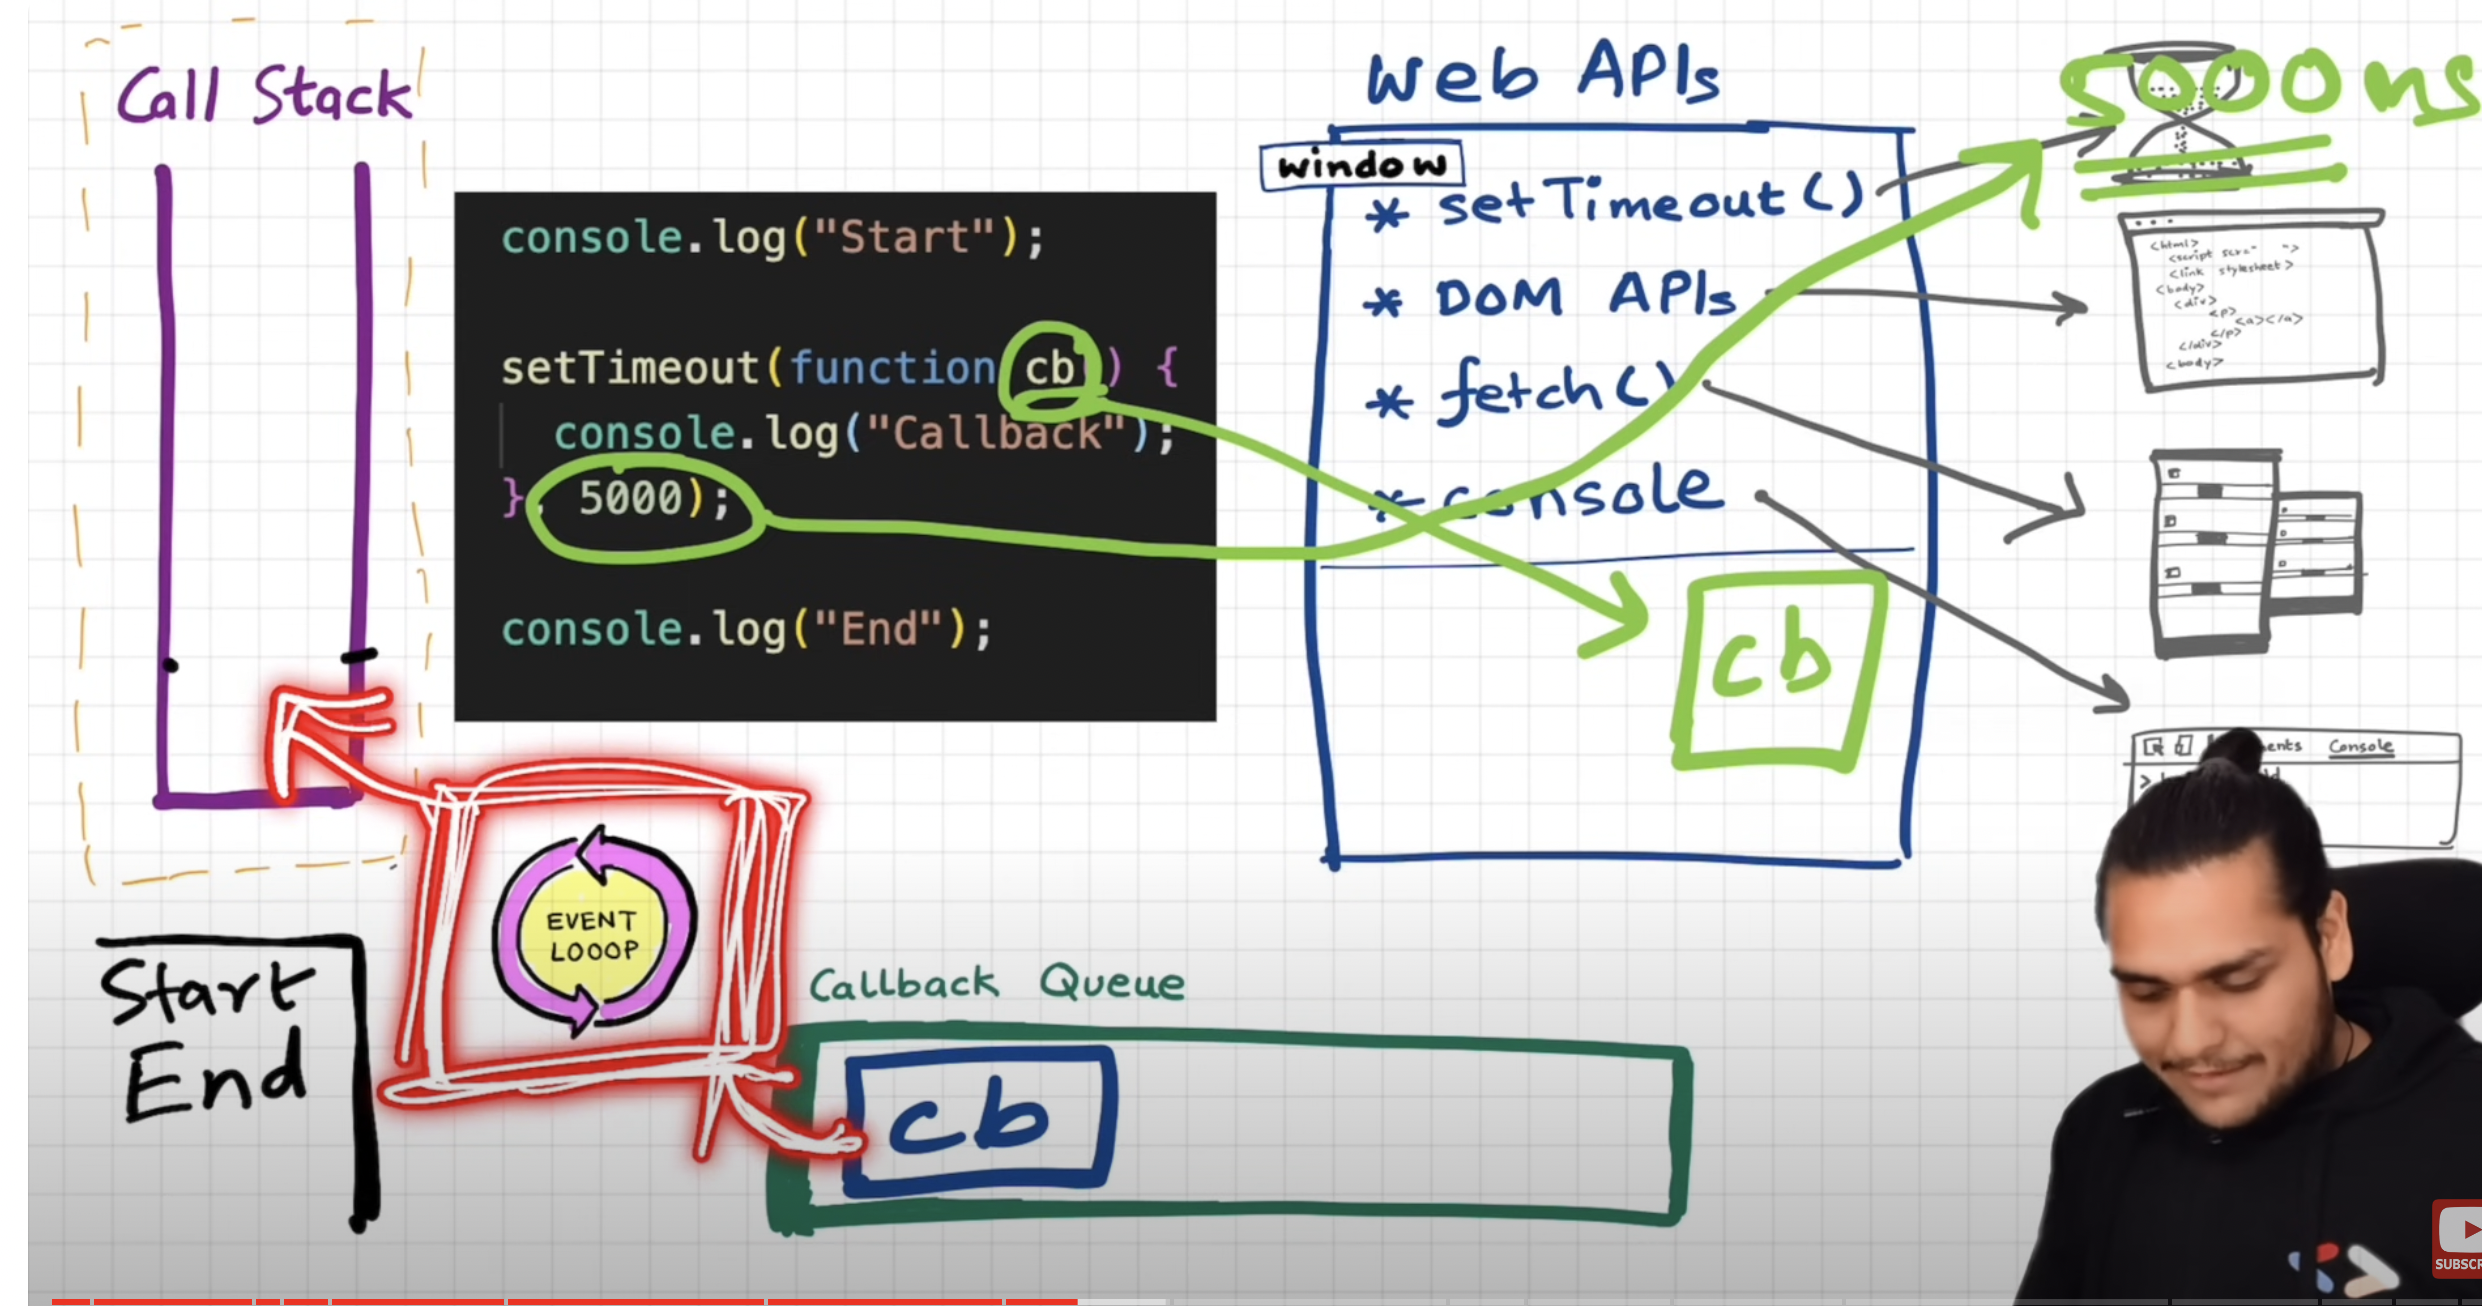 Call Stack
console.log("Start");
setTimeout(function cb() {
console.log("Callback");
}, 5000);
console.log("End");
Web APIs
window
* setTimeout()
* DOM APIs
* fetch()
* console
cb
5000ms
<html>
<script scr=" ">
<link stylesheet>
<body>
<div>
<p>
<a></a>
</p>
</div>
<body>
ents Console
>
EVENT
LOOOP
Start
End
Callback Queue
cb
SUBSCR